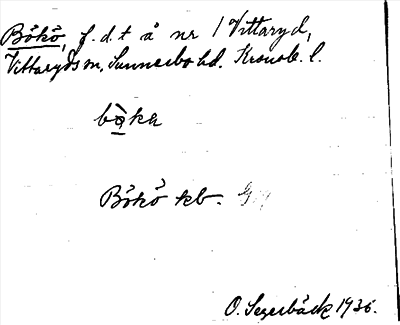 Bökö, f.d.t å nr 1 Vittaryd,
Vittaryds sn, Sunnerbo hd. Kronob. l.
bɔ̀ka
Bökö kb.
O. Segerbäck 1936.